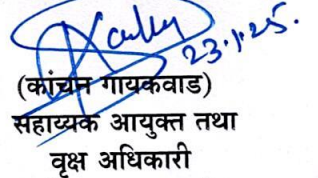 23.1.25.
(कांचन गायकवाड)
सहाय्यक आयुक्त तथा
वृक्ष अधिकारी